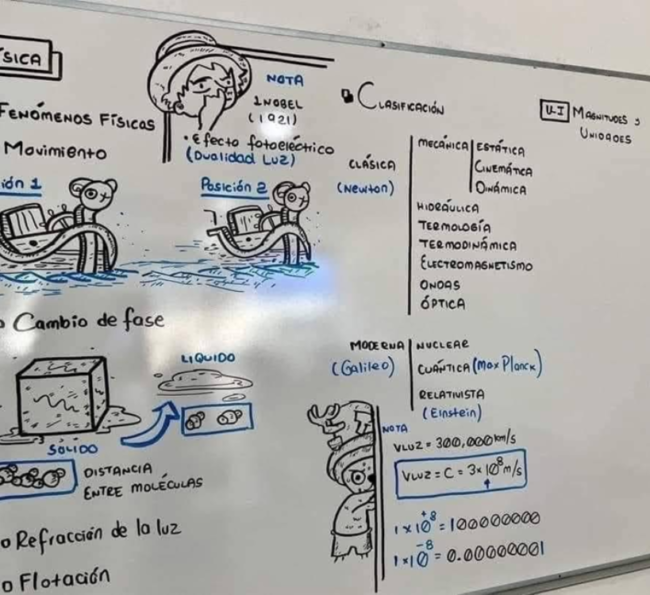 SICA
FENÓMENOS FÍSICOS
Movimiento
ión 1
Posición 2
NOTA
1 NOBEL
(1921)
• Efecto fotoeléctrico
(Dualidad Luz)
o Cambio de fase
LIQUIDO
SÓLIDO
DISTANCIA
ENTRE MOLÉCULAS
o Refracción de la luz
o Flotación
CLASIFICACIÓN
CLÁSICA
(Newton)
MECÁNICA
ESTÁTICA
CINEMÁTICA
DINÁMICA
HIDRÁULICA
TERMOLOGÍA
TERMODINÁMICA
ELECTROMAGNETISMO
ONDAS
ÓPTICA
MODERNA
(Galileo)
NUCLEAR
CUÁNTICA (Max Planck)
RELATIVISTA
(Einstein)
NOTA
VLUZ = 300,000 km/s
VLUZ = C = 3x10⁸ m/s
1x10⁺⁸ = 100000000
1x10⁻⁸ = 0.00000001
U-I MAGNITUDES Y
UNIDADES